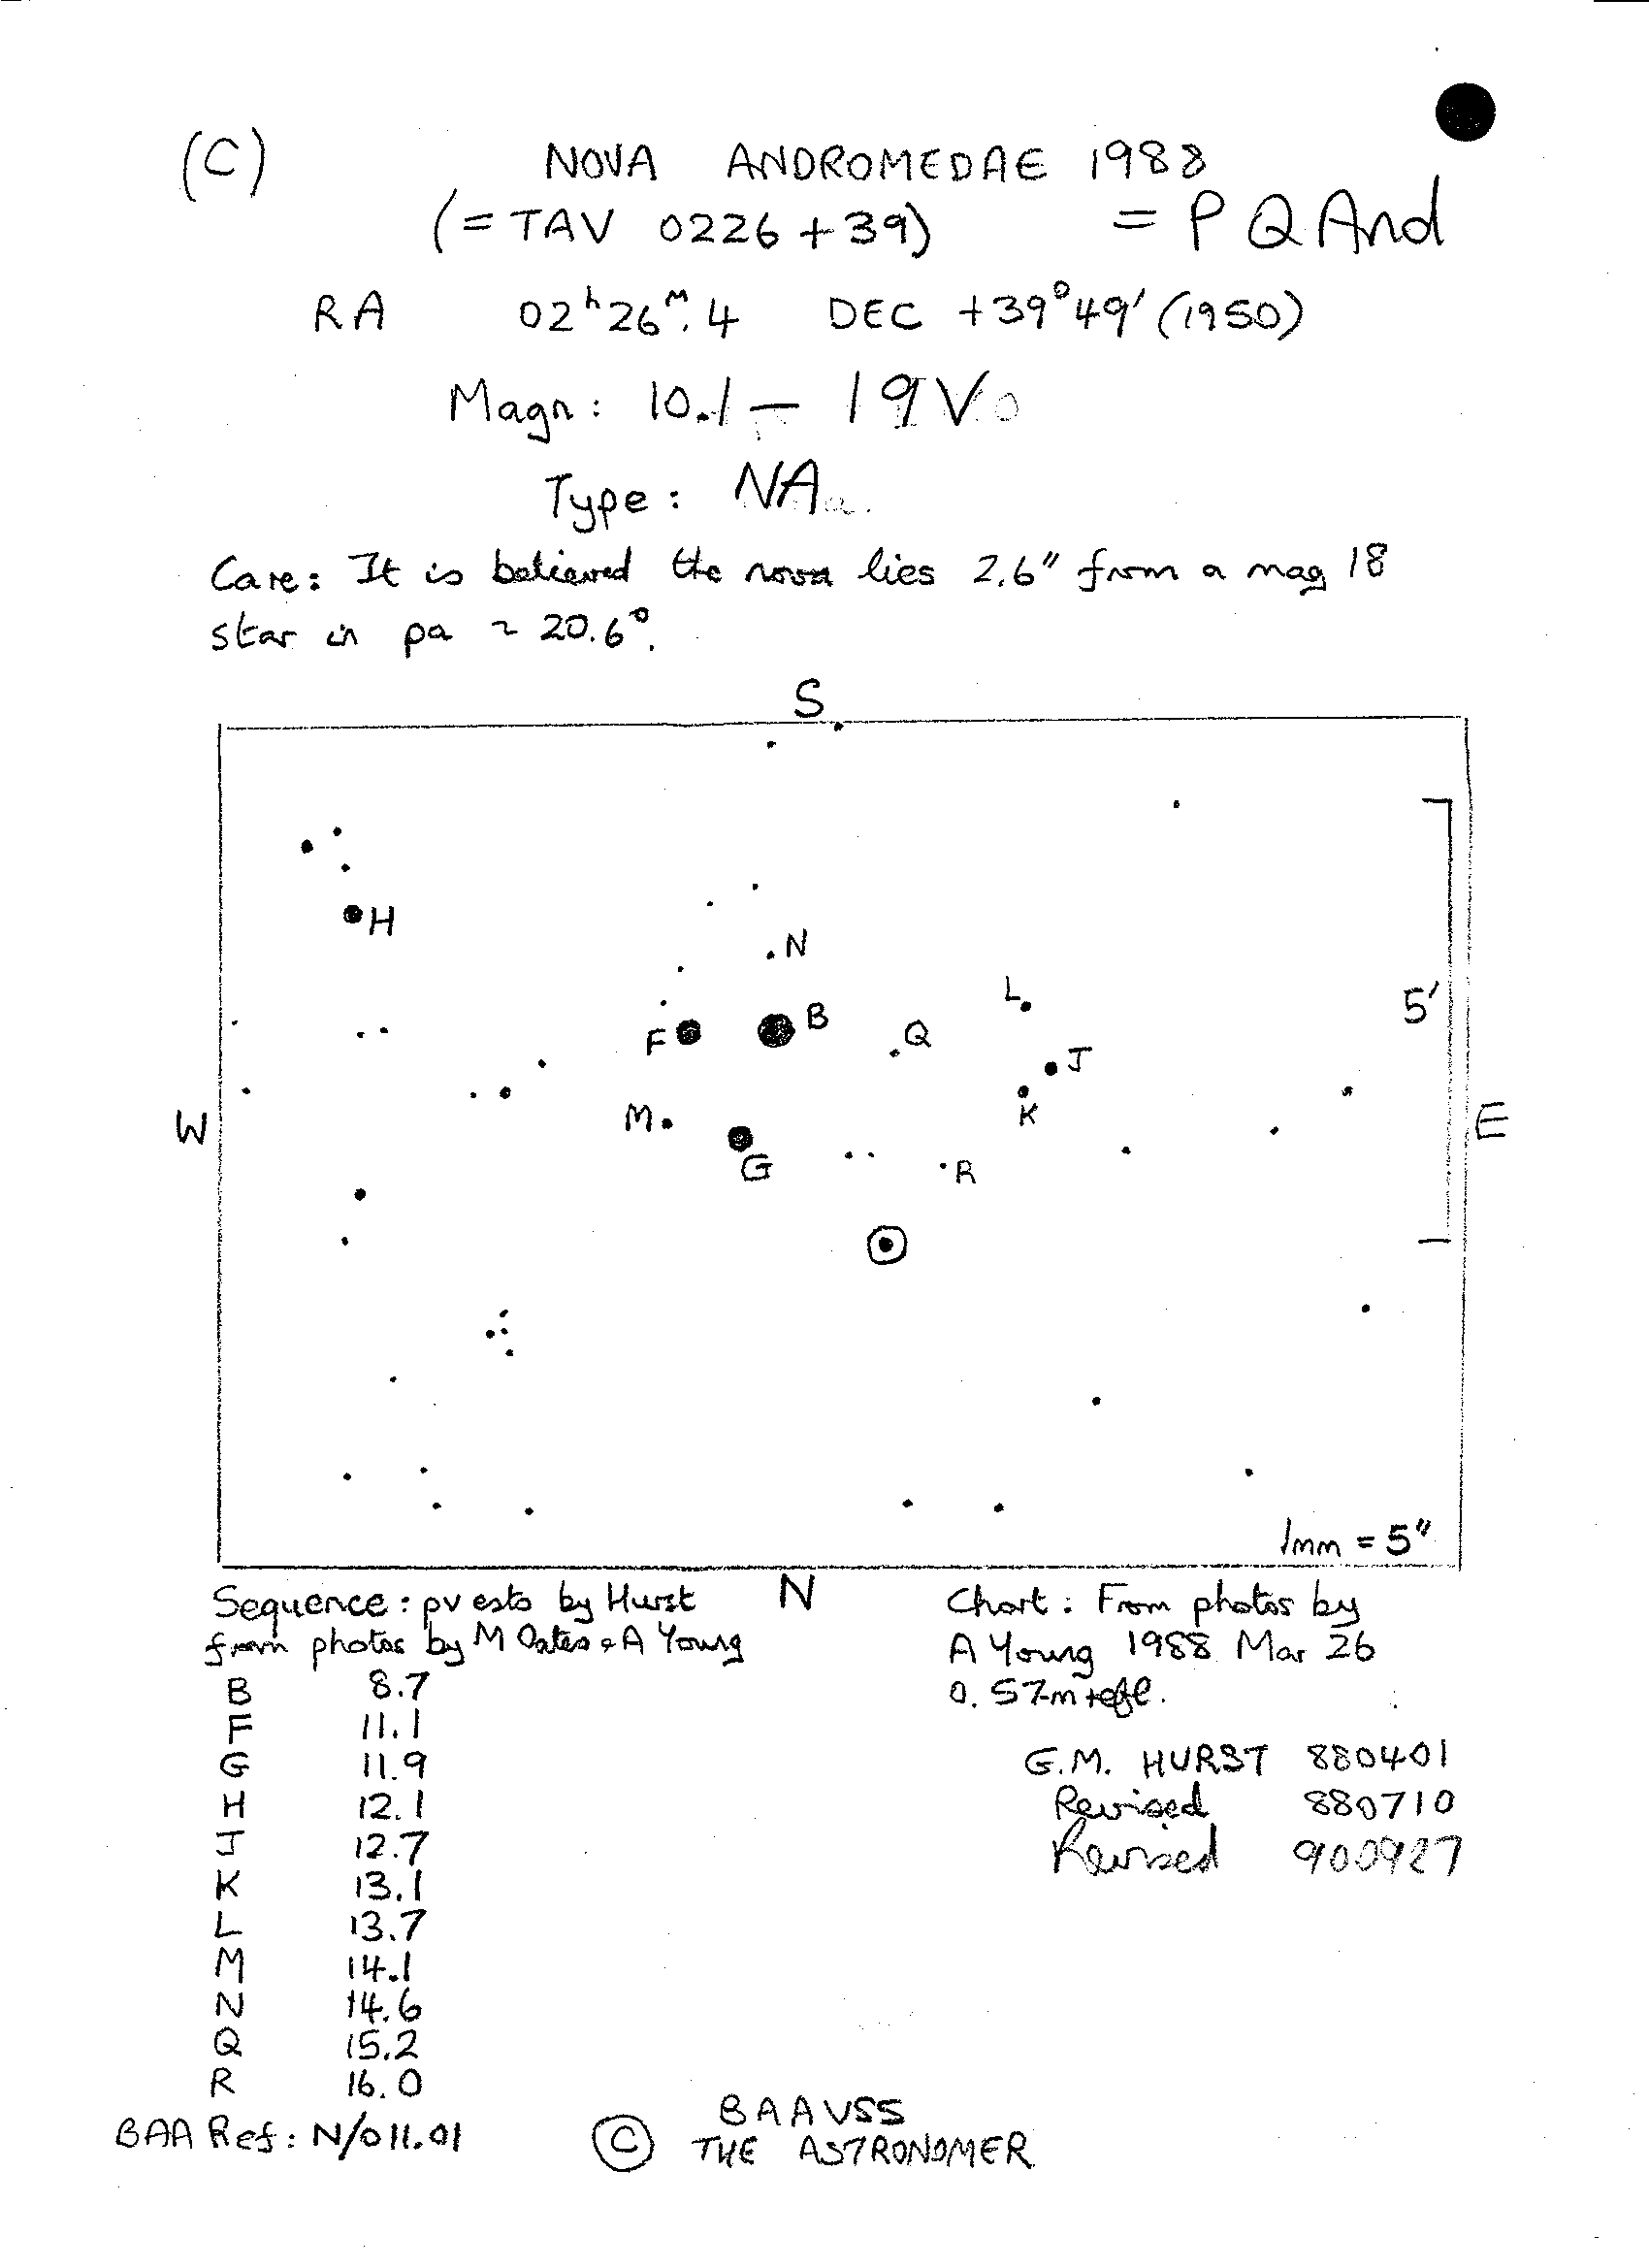 (C) NOVA ANDROMEDAE 1988
(= TAV 0226+39) = PQ And
RA 02ʰ26ᵐ.4 DEC +39°49′ (1950)
Magn: 10.1 — 19V
Type: NA
Care: It is believed the nova lies 2.6″ from a mag 18
star in pa ~ 20.6°.
S
H
N
L
B
5′
F
Q
J
K
M
W
E
G
R
1mm = 5″
N
Sequence: pv ests by Hurst
from photos by M Oates & A Young
B 8.7
F 11.1
G 11.9
H 12.1
J 12.7
K 13.1
L 13.7
M 14.1
N 14.6
Q 15.2
R 16.0
BAA Ref: N/011.01
Chart: From photos by
A Young 1988 Mar 26
0.57-m refl.
G.M. HURST 880401
Revised 880710
Revised 900927
© BAAVSS
THE ASTRONOMER